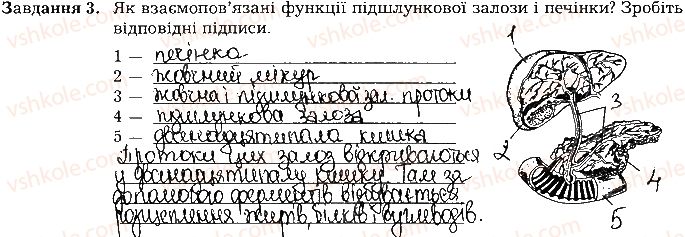 Завдання 3. Як взаємопов'язані функції підшлункової залози і печінки? Зробіть
відповідні підписи.
1 – печінка
2 – жовчний міхур
3 – жовчна і підшлункової зал. протоки
4 – підшлункова залоза
5 – дванадцятипала кишка
Протоки цих залоз відкриваються
у дванадцятипалу кишку. Там за
допомогою ферментів відбувається
розщеплення жирів, білків і вуглеводів.
1
2
3
4
5
vshkole.com